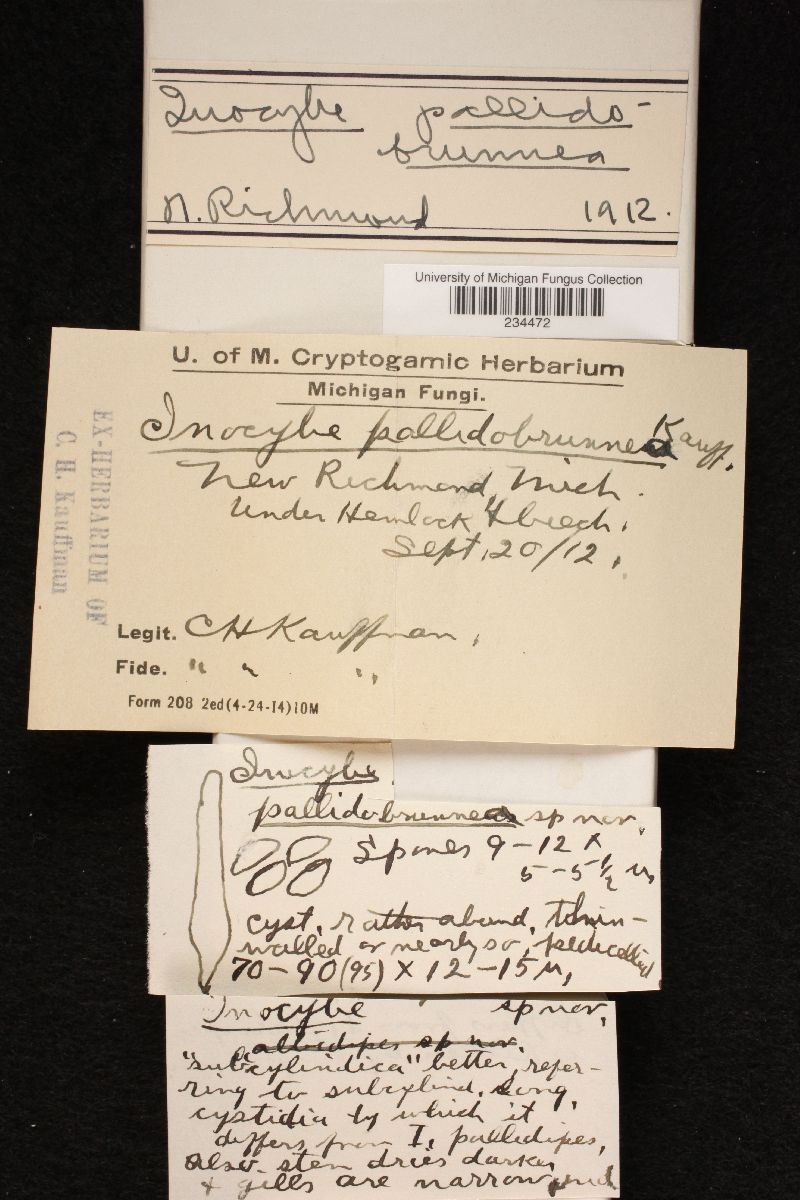 Inocybe pallido-
brunnea
N. Richmond 1912.
University of Michigan Fungus Collection
234472
U. of M. Cryptogamic Herbarium
Michigan Fungi.
Inocybe pallidobrunnea Kauff.
New Richmond, Mich.
Under Hemlock & beech.
Sept. 20/12.
EX-HERBARIUM OF
C. H. Kauffman
Legit. CH Kauffman.
Fide. " " "
Form 208 2ed(4-24-14)10M
Inocybe
pallidobrunnea sp nov.
Spores 9-12 x
5-5½ µ,
cyst. rather abund, thin-
walled or nearly so, pedicelled
70-90(95) x 12-15 µ,
Inocybe sp nov.
albidipes sp nov.
"subcylindica" better, refer-
ring to subcylind. long,
cystidia by which it
differs from I. pallidipes,
also stem dries darker
& gills are narrow